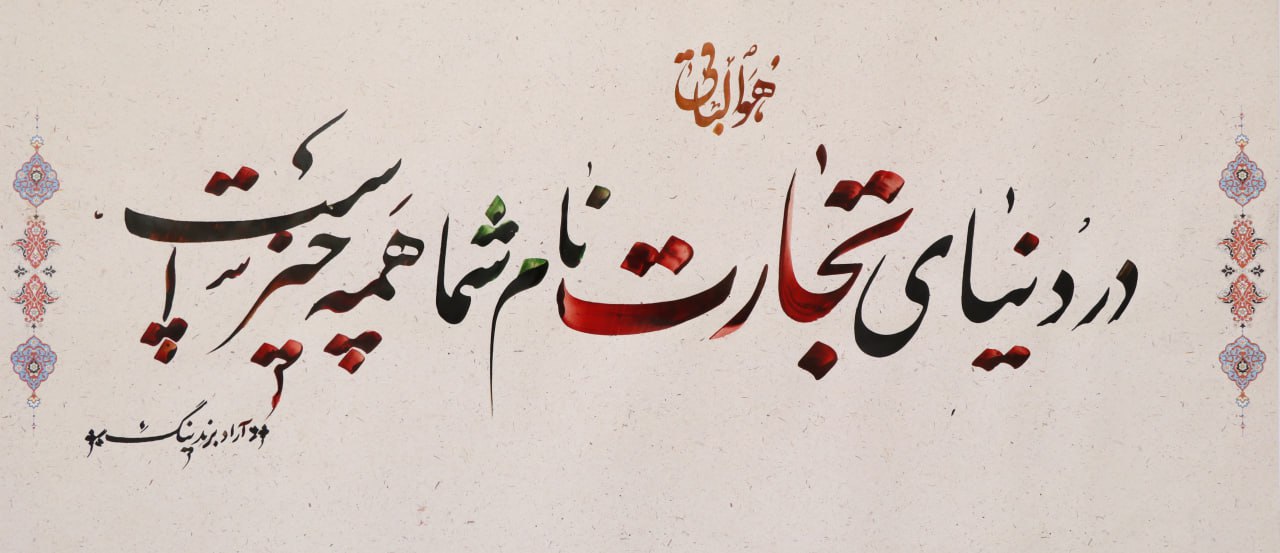 هُوَ الباقی
در دنیای تجارت نام شما همه چیز است
آراد برندینگ